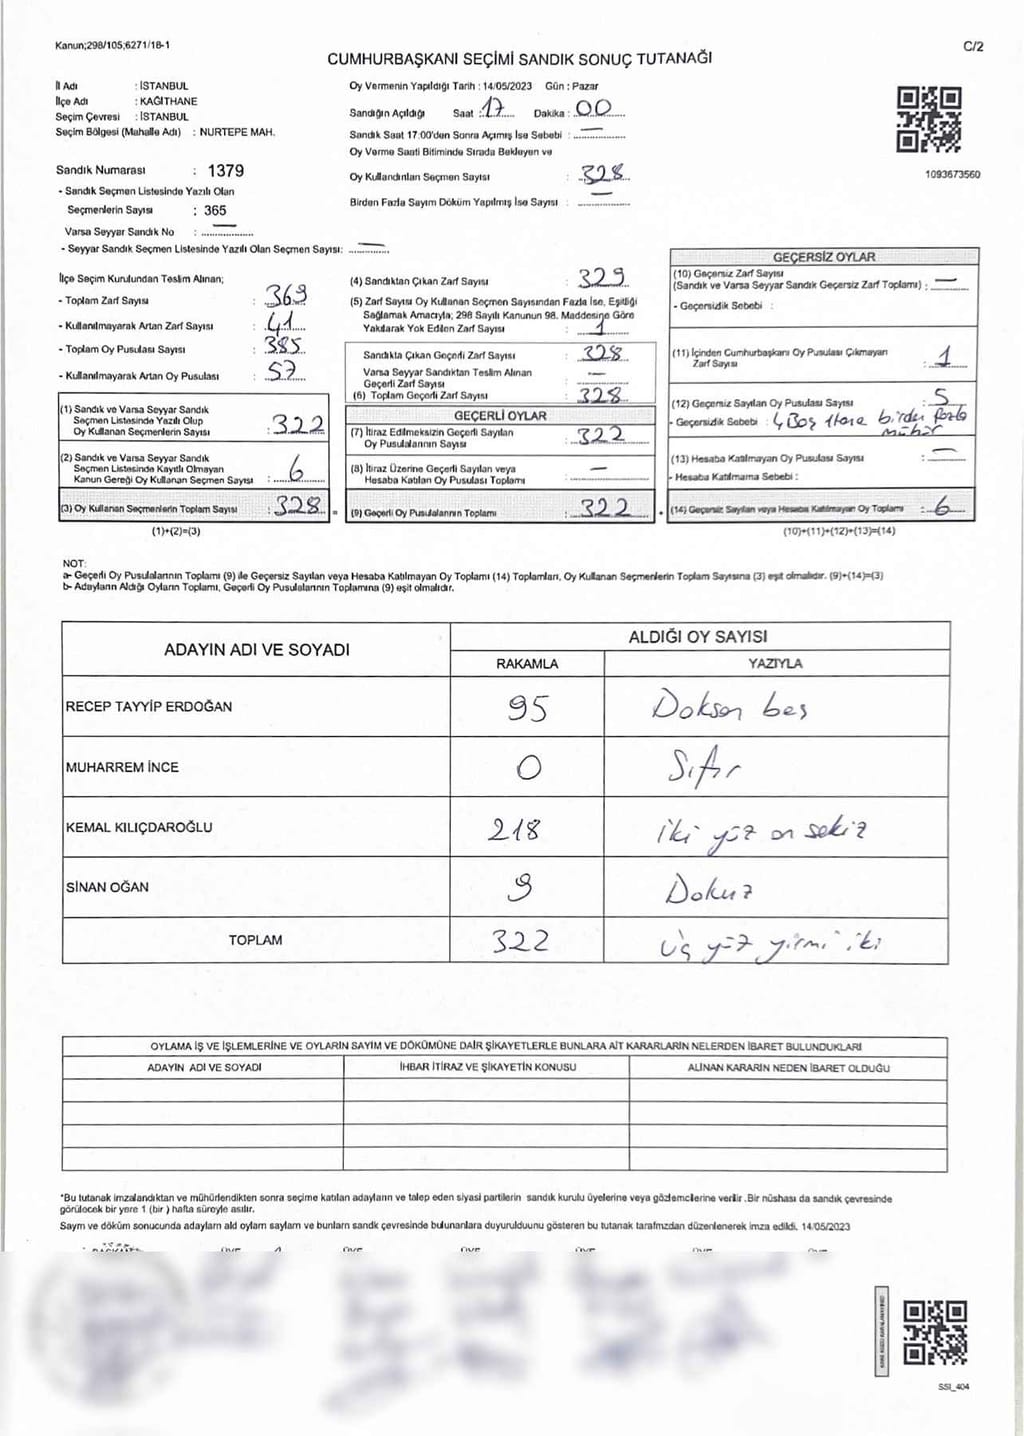 Kanun;298/105;6271/18-1
C/2
CUMHURBAŞKANI SEÇİMİ SANDIK SONUÇ TUTANAĞI
İl Adı : İSTANBUL
İlçe Adı : KAĞITHANE
Seçim Çevresi : İSTANBUL
Seçim Bölgesi (Mahalle Adı) : NURTEPE MAH.
Sandık Numarası : 1379
- Sandık Seçmen Listesinde Yazılı Olan
Seçmenlerin Sayısı : 365
Varsa Seyyar Sandık No : —
- Seyyar Sandık Seçmen Listesinde Yazılı Olan Seçmen Sayısı: —
Oy Vermenin Yapıldığı Tarih : 14/05/2023 Gün : Pazar
Sandığın Açıldığı Saat : 17 Dakika : 00
Sandık Saat 17:00'den Sonra Açımış İse Sebebi : —
Oy Verme Saati Bitiminde Sırada Bekleyen ve
Oy Kullandırılan Seçmen Sayısı : 328
Birden Fazla Sayım Döküm Yapılmış İse Sayısı : —
1093673560
İlçe Seçim Kurulundan Teslim Alınan;
- Toplam Zarf Sayısı : 369
- Kullanılmayarak Artan Zarf Sayısı : 41
- Toplam Oy Pusulası Sayısı : 385
- Kullanılmayarak Artan Oy Pusulası : 57
(1) Sandık ve Varsa Seyyar Sandık
Seçmen Listesinde Yazılı Olup
Oy Kullanan Seçmenlerin Sayısı : 322
(2) Sandık ve Varsa Seyyar Sandık
Seçmen Listesinde Kayıtlı Olmayan
Kanun Gereği Oy Kullanan Seçmen Sayısı : 6
(3) Oy Kullanan Seçmenlerin Toplam Sayısı : 328
(1)+(2)=(3)
(4) Sandıktan Çıkan Zarf Sayısı : 329
(5) Zarf Sayısı Oy Kullanan Seçmen Sayısından Fazla İse, Eşitliği
Sağlamak Amacıyla; 298 Sayılı Kanunun 98. Maddesine Göre
Yakılarak Yok Edilen Zarf Sayısı : 1
Sandıkta Çıkan Geçerli Zarf Sayısı : 328
Varsa Seyyar Sandıktan Teslim Alınan
Geçerli Zarf Sayısı : —
(6) Toplam Geçerli Zarf Sayısı : 328
GEÇERLİ OYLAR
(7) İtiraz Edilmeksizin Geçerli Sayılan
Oy Pusulalarının Sayısı : 322
(8) İtiraz Üzerine Geçerli Sayılan veya
Hesaba Katılan Oy Pusulası Toplamı : —
= (9) Geçerli Oy Pusulalarının Toplamı : 322
GEÇERSİZ OYLAR
(10) Geçersiz Zarf Sayısı
(Sandık ve Varsa Seyyar Sandık Geçersiz Zarf Toplamı) : —
- Geçersizlik Sebebi :
(11) İçinden Cumhurbaşkanı Oy Pusulası Çıkmayan
Zarf Sayısı : 1
(12) Geçersiz Sayılan Oy Pusulası Sayısı : 5
- Geçersizlik Sebebi : 4 Boş 1 tane birden fazla
mühür
(13) Hesaba Katılmayan Oy Pusulası Sayısı : —
- Hesaba Katılmama Sebebi :
+ (14) Geçersiz Sayılan veya Hesaba Katılmayan Oy Toplamı : 6
(10)+(11)+(12)+(13)=(14)
NOT:
a- Geçerli Oy Pusulalarının Toplamı (9) ile Geçersiz Sayılan veya Hesaba Katılmayan Oy Toplamı (14) Toplamları, Oy Kullanan Seçmenlerin Toplam Sayısına (3) eşit olmalıdır. (9)+(14)=(3)
b- Adayların Aldığı Oyların Toplamı, Geçerli Oy Pusulalarının Toplamına (9) eşit olmalıdır.
ADAYIN ADI VE SOYADI ALDIĞI OY SAYISI
RAKAMLA YAZIYLA
RECEP TAYYİP ERDOĞAN 95 Doksan beş
MUHARREM İNCE 0 Sıfır
KEMAL KILIÇDAROĞLU 218 iki yüz on sekiz
SİNAN OĞAN 9 Dokuz
TOPLAM 322 üç yüz yirmi iki
OYLAMA İŞ VE İŞLEMLERİNE VE OYLARIN SAYIM VE DÖKÜMÜNE DAİR ŞİKAYETLERLE BUNLARA AİT KARARLARIN NELERDEN İBARET BULUNDUKLARI
ADAYIN ADI VE SOYADI İHBAR İTİRAZ VE ŞİKAYETİN KONUSU ALINAN KARARIN NEDEN İBARET OLDUĞU
*Bu tutanak imzalandıktan ve mühürlendikten sonra seçime katılan adayların ve talep eden siyasi partilerin sandık kurulu üyelerine veya gözlemcilerine verilir .Bir nüshası da sandık çevresinde
görülecek bir yere 1 (bir ) hafta süreyle asılır.
Sayım ve döküm sonucunda adaylarn ald oylarn saylarn ve bunlarn sandk çevresinde bulunanlara duyurulduunu gösteren bu tutanak tarafmzdan düzenlenerek imza edildi. 14/05/2023
SSI_404